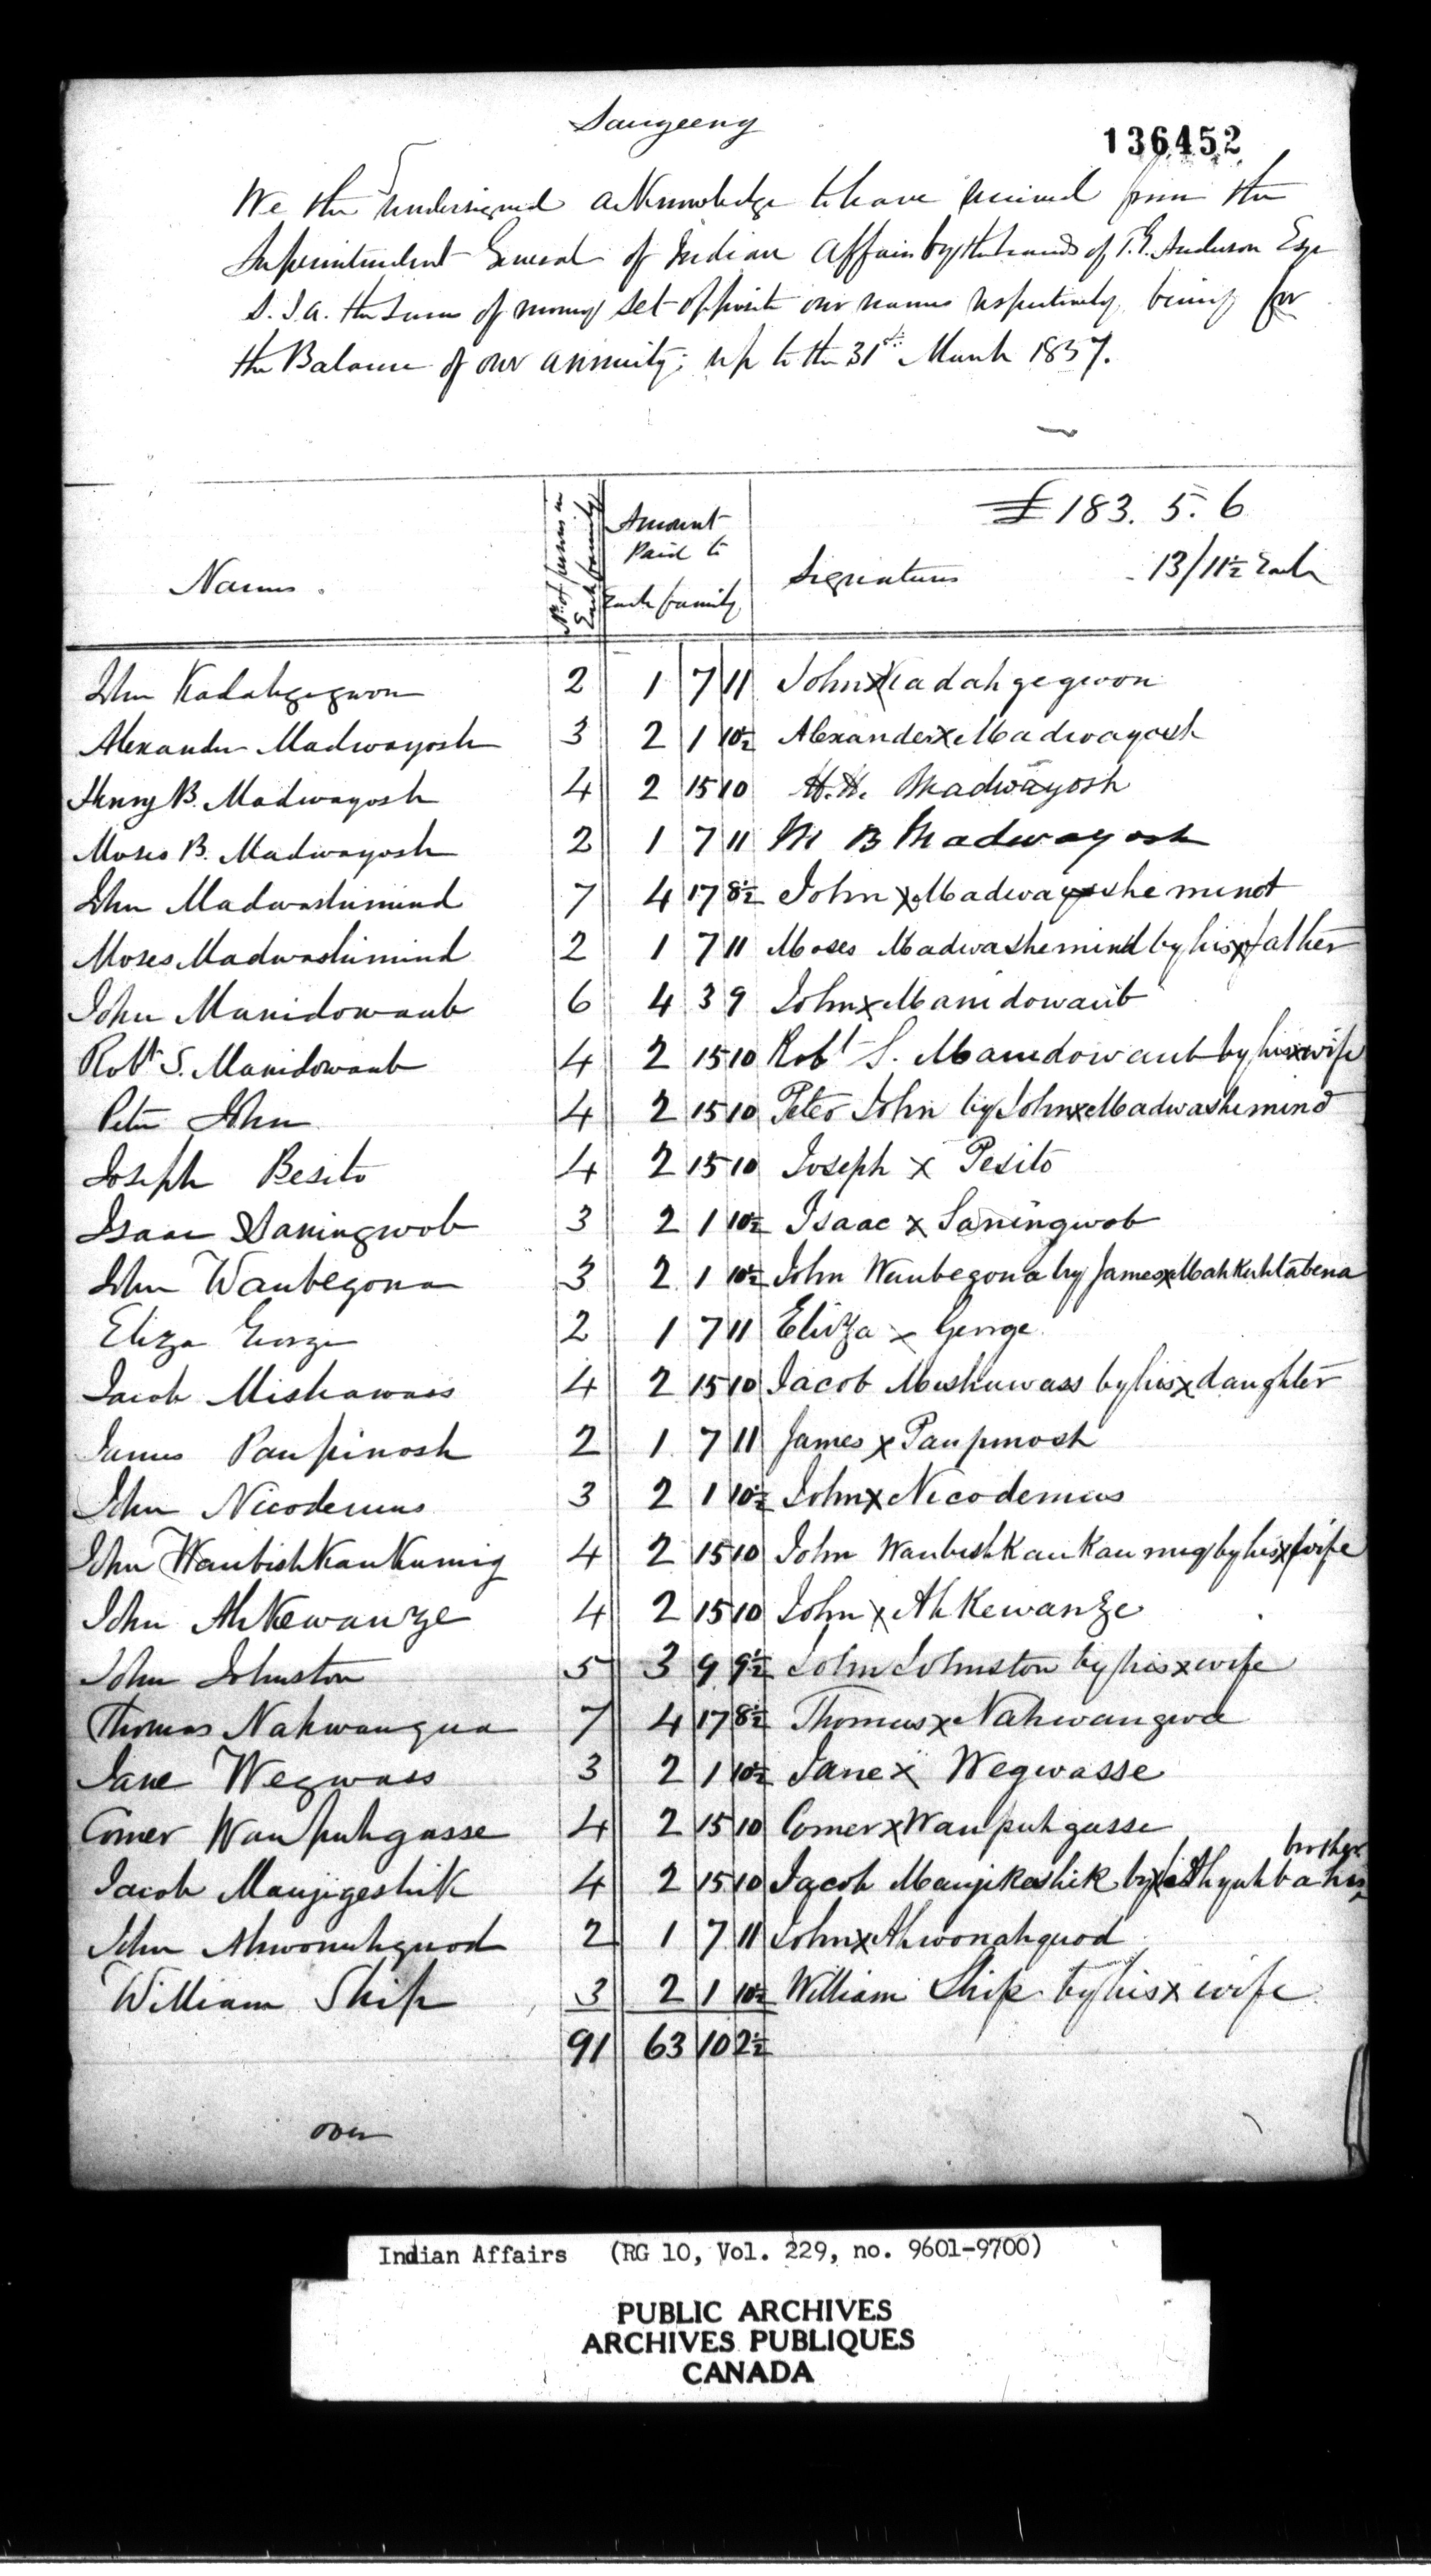 Saugeeng
136452
We the undersigned acknowledge to have received from the
Superintendent General of Indian Affairs by the hands of T.G. Anderson Esqr
S.I.a. the sums of money set opposite our names respectively, being for
the Balance of our annuity; up to the 31st March 1857.
£183. 5. 6
Names.
No. of persons in Each family
Amount Paid to Each family
Signatures
13/11½ Each
John Kadahgegwon 2 1 7 11 John x Kadahgegwon
Alexander Madwayosh 3 2 1 10½ Alexander x Madwayosh
Henry B. Madwayosh 4 2 15 10 H.H. Madwayosh
Moses B. Madwayosh 2 1 7 11 M B Madwayosh
John Madwashimind 7 4 17 8½ John x Madwayashemindt
Moses Madwashimind 2 1 7 11 Moses Madwashemind by his x father
John Manidowaub 6 4 3 9 John x Manidowaub
Robt S. Manidowaub 4 2 15 10 Robt S. Manidowaub by his x wife
Peter John 4 2 15 10 Peter John by John x Madwashemind
Joseph Besito 4 2 15 10 Joseph x Pesito
Isaac Saningwob 3 2 1 10½ Isaac x Saningwob
John Waubegona 3 2 1 10½ John Waubegona by James x Mahkuhtabena
Eliza George 2 1 7 11 Eliza x George
Jacob Mishawass 4 2 15 10 Jacob Meshuwass by his x daughter
James Paupinosh 2 1 7 11 James x Paupinosh
John Nicodemus 3 2 1 10½ John x Nicodemus
John Waubishkaukumig 4 2 15 10 John Waubishkaukaumig by his x wife
John AhKewanze 4 2 15 10 John x AhKewanze
John Johnston 5 3 9 9½ John Johnston by his x wife
Thomas Nahwangua 7 4 17 8½ Thomas x Nahwangwa
Jane Wegwass 3 2 1 10½ Jane x Wegwasse
Comer Waupuhgasse 4 2 15 10 Comer x Waupuhgasse
brother
Jacob Maujigeshik 4 2 15 10 Jacob Maujikeshik by Ahyahba his
John Ahwonuhquod 2 1 7 11 John x Ahwonahquod
William Ship 3 2 1 10½ William Ship by his x wife
91 63 10 2½
over
Indian Affairs (RG 10, Vol. 229, no. 9601-9700)
PUBLIC ARCHIVES
ARCHIVES PUBLIQUES
CANADA